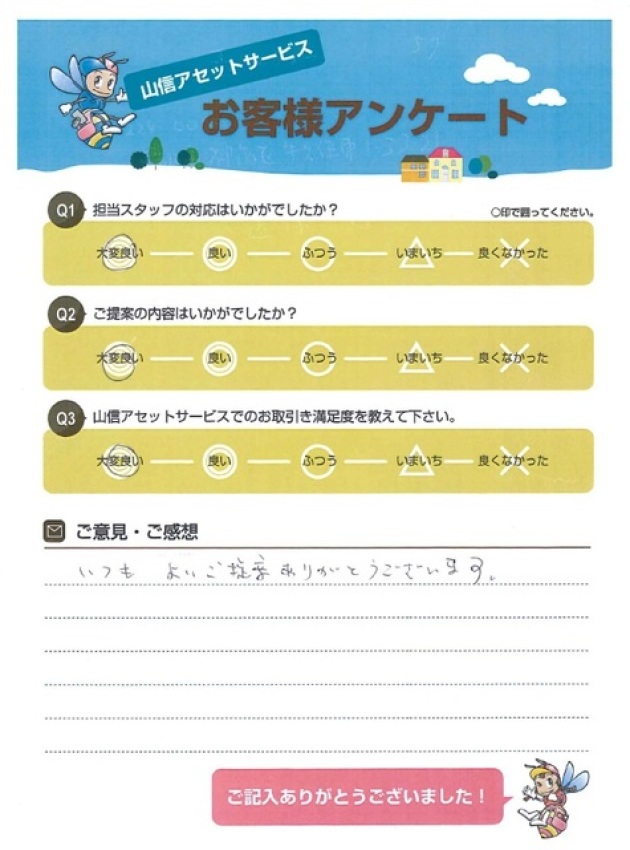 山信アセットサービス
お客様アンケート
Q1 担当スタッフの対応はいかがでしたか？ ○印で囲ってください。
大変良い 良い ふつう いまいち 良くなかった
Q2 ご提案の内容はいかがでしたか？
大変良い 良い ふつう いまいち 良くなかった
Q3 山信アセットサービスでのお取引き満足度を教えて下さい。
大変良い 良い ふつう いまいち 良くなかった
ご意見・ご感想
いつも よいご提案ありがとうございます。
ご記入ありがとうございました！